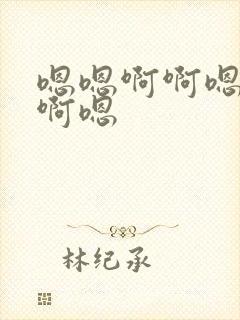 嗯嗯啊啊嗯
啊嗯
林纪承